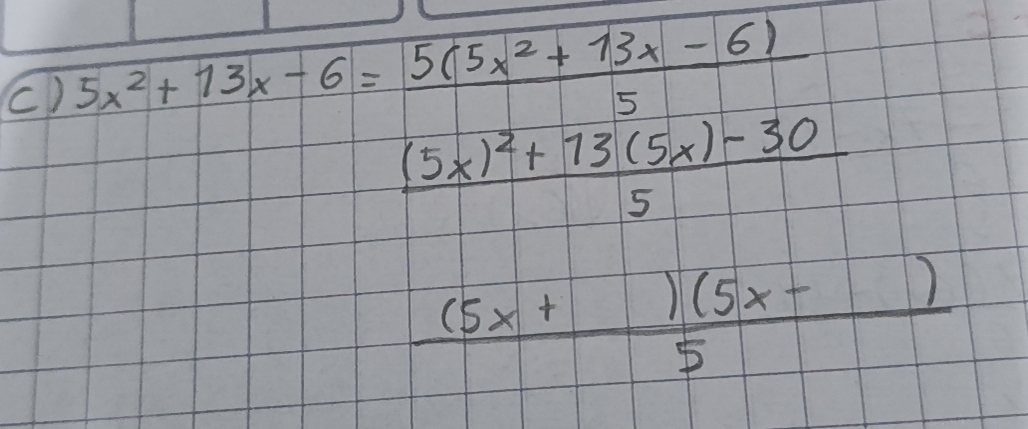 c) 5x² + 13x - 6 = 5(5x² + 13x - 6)
5
(5x)² + 13(5x) - 30
5
(5x + )(5x - )
5